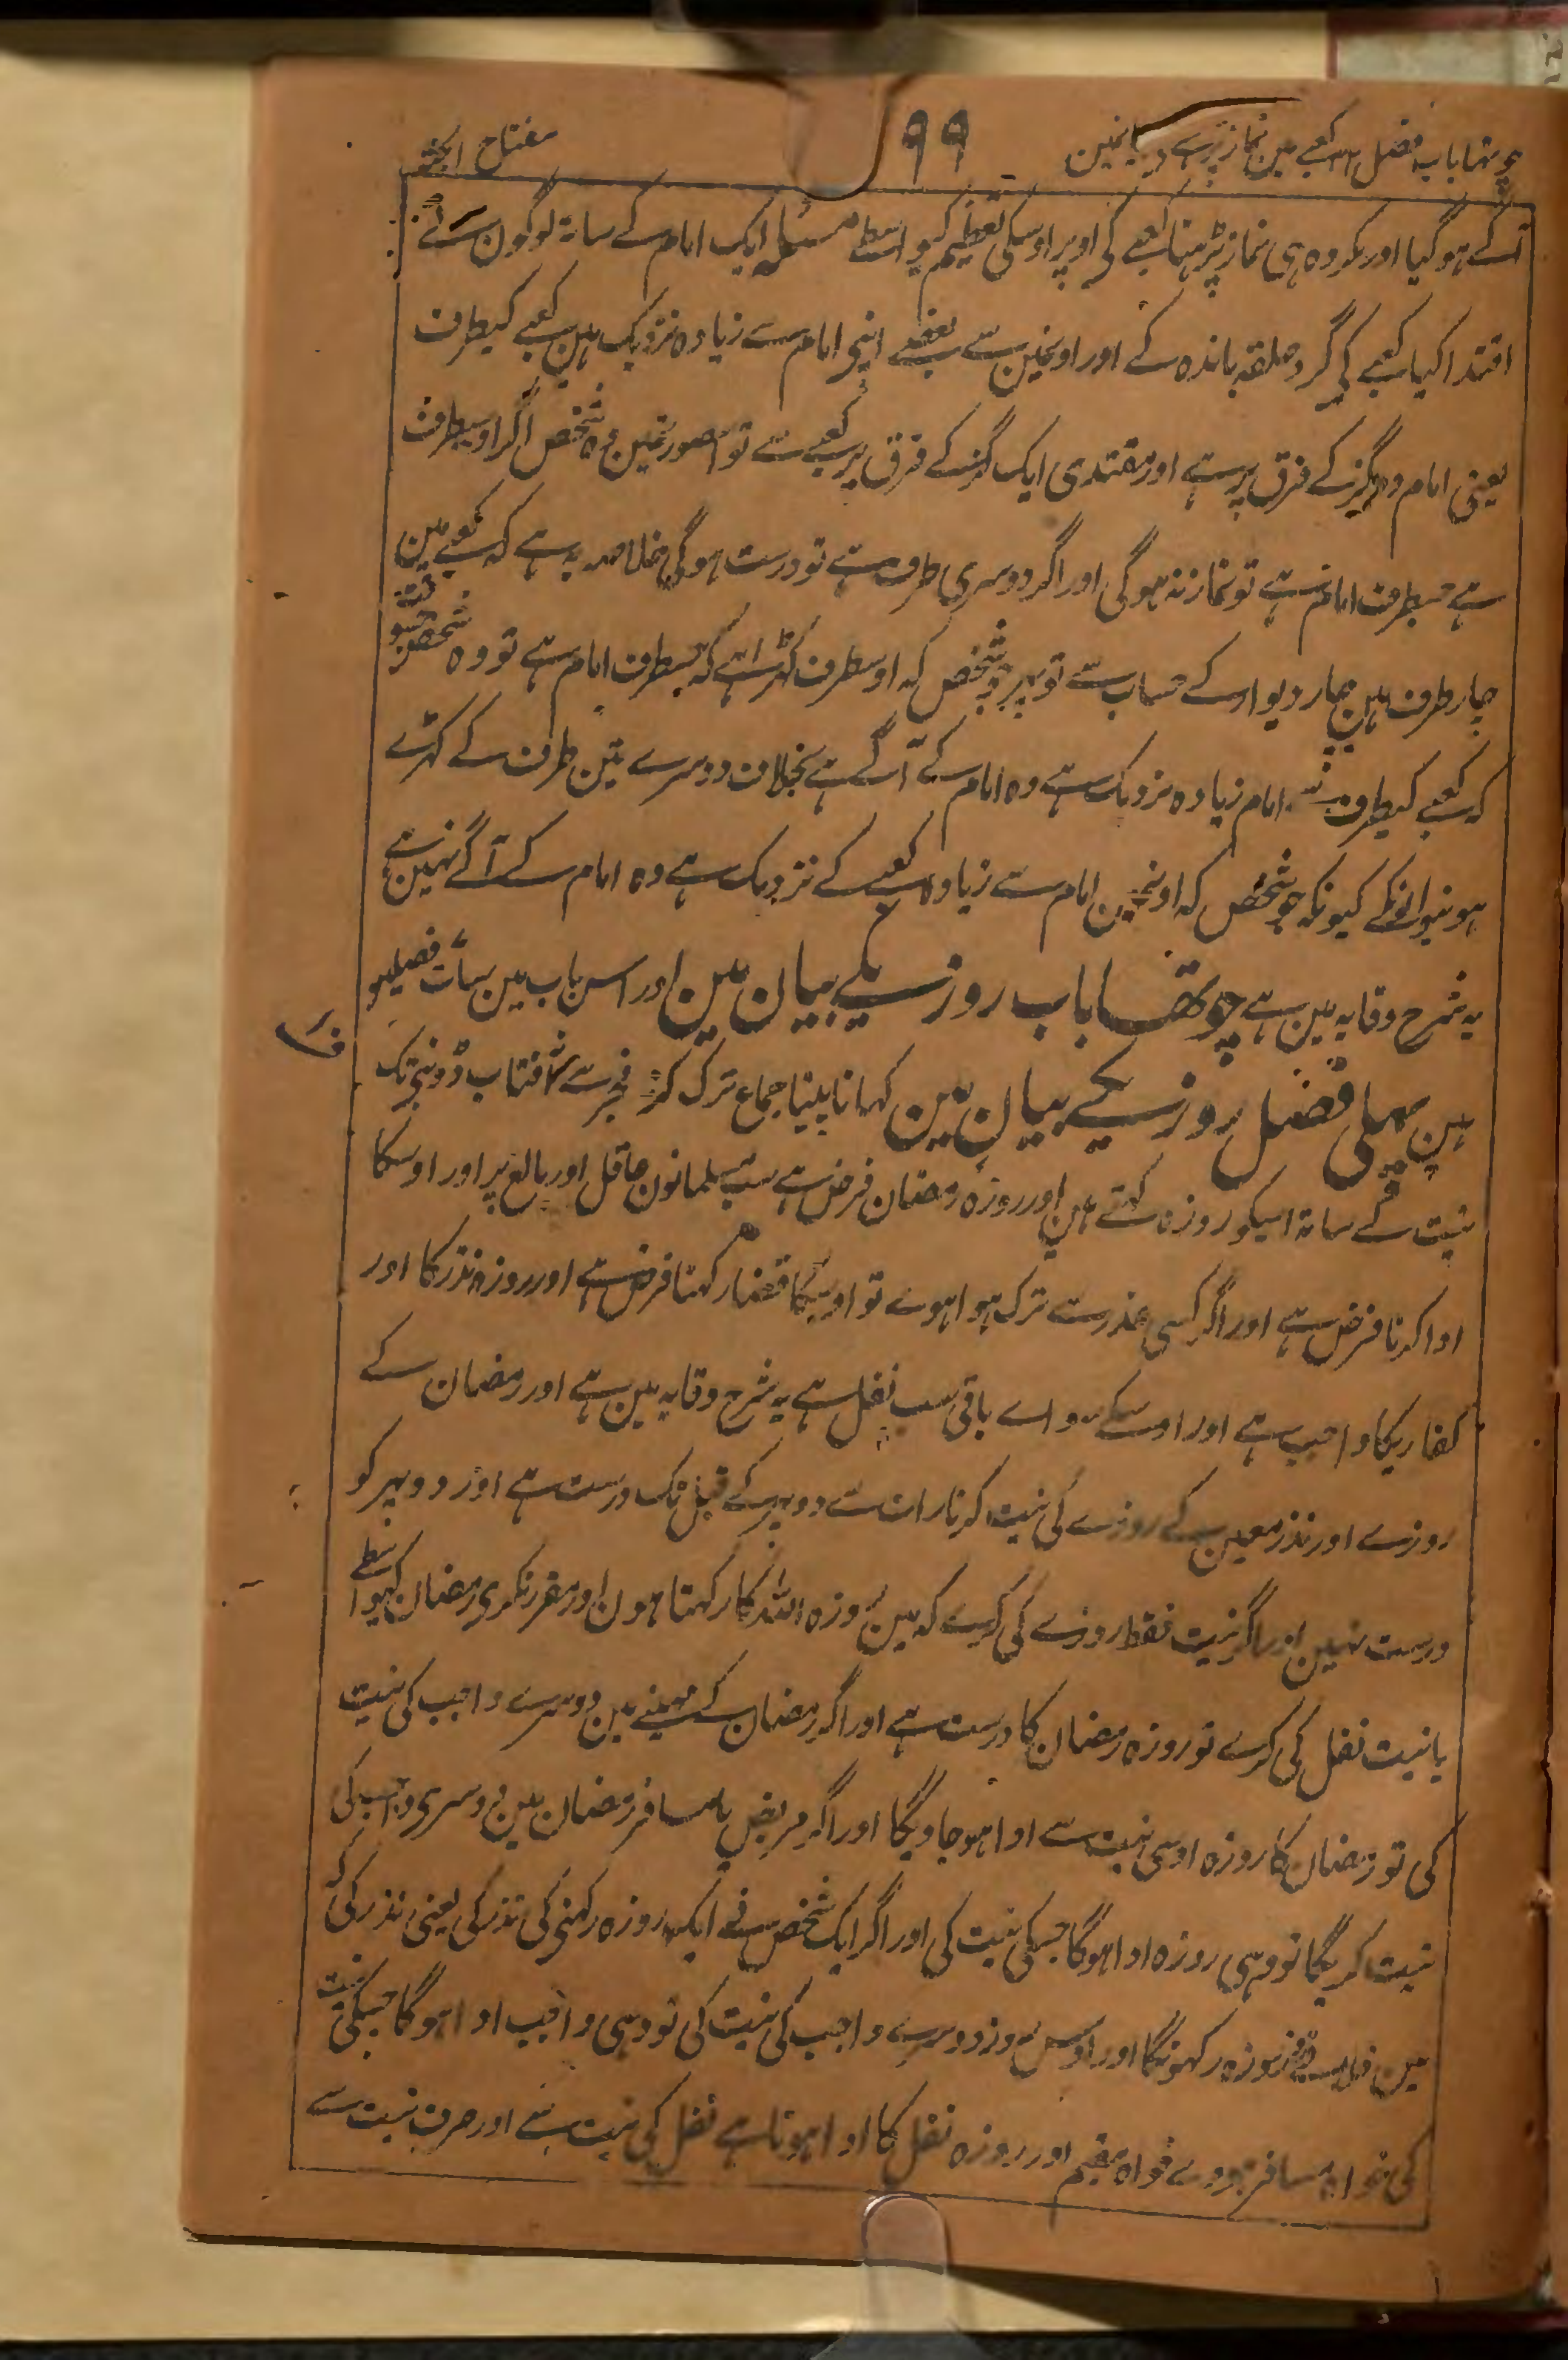 چوتھا باب فصل کعبے مین نماز پڑہنے کے بیانمین ۹۹ مفتاح الجنۃ
آگے ہو گیا اور مکروہ ہی نماز پڑہنا کعبے کی اوپر اوسکی تعظیم کیواسطے مسئلہ ایک امام کے ساتہ لوگون نے
اقتدا کیا کعبے کی گرد حلقہ باندہ کے اور اونمین سے بعضے اپنی امام سے زیادہ نزدیک ہین کعبے کیطرف
یعنی امام دو گز کے فرق پر ہے اور مقتدی ایک گز کے فرق پر کعبے سے تو اسصورتمین وہ شخص اگر اوسیطرف
ہے جسطرف امام ہے تو نماز نہوگی اور اگر دوسری طرف ہے تو درست ہوگی خلاصہ یہ ہے کہ کعبے مین
چار طرف ہین چار دیوار کے حساب سے تو پہر جو شخص کہ اوسطرف کہڑا ہے کہ جسطرف امام ہے تو وہ شخص جسوقت
کہ کعبے کیطرف بہ نسبت امام زیادہ نزدیک ہے وہ امام کے آگے ہے بخلاف دوسرے تین طرف کے کہڑے
ہونیوالونکے کیونکہ جو شخص کہ اونمین امام سے زیادہ کعبے کے نزدیک ہے وہ امام کے آگے نہین ہے
یہ شرح وقایہ مین ہے چوتھا باب روزیکے بیان مین اور اس باب مین سات فصلین
ہین پہلی فصل روزیکے بیان مین کہانا پینا جماع ترک کرنا فجر سے آفتاب ڈوبنی تک
نیت کے ساتہ اسیکو روزہ کہتے ہین اور روزہ رمضان فرض ہے سب مسلمانون عاقل اور بالغ پر اور اوسکا
ادا کرنا فرض ہے اور اگر کسی عذر سے ترک ہوا ہووے تو اوسکا قضا رکہنا فرض ہے اور روزہ نذر کا اور
کفاریکا واجب ہے اور اوسکے سواے باقی سب نفل ہے یہ شرح وقایہ مین ہے اور رمضان کے
روزے اور نذر معین کے روزے کی نیت کرنا رات سے دوپہر کے قبل تک درست ہے اور دوپہر کو
درست نہین اور اگر نیت فقط روزے کی کرے کہ مین روزہ اللہ کا رکہتا ہون اور مقرر نکری رمضان کیواسطے
یا نیت نفل کی کرے تو روزہ رمضان کا درست ہے اور اگر رمضان کے مہینے مین دوسرے واجب کی نیت
کی تو رمضان کا روزہ اوسی نیت سے ادا ہو جاویگا اور اگر مریض یا مسافر رمضان مین دوسری واجب کی
نیت کریگا تو وہی روزہ ادا ہوگا جسکی نیت کی اور اگر ایک شخص نے ایک روزہ رکہنی کی نذر کی یعنی نذر کی کہ
مین فلانے روز روزہ رکہونگا اور اوس روز دوسرے واجب کی نیت کی تو وہی واجب ادا ہوگا جسکی نیت
کی خواہ مسافر ہووے خواہ مقیم اور روزہ نفل کا ادا ہوتا ہے نفل کی نیت سے اور صرف نیت سے